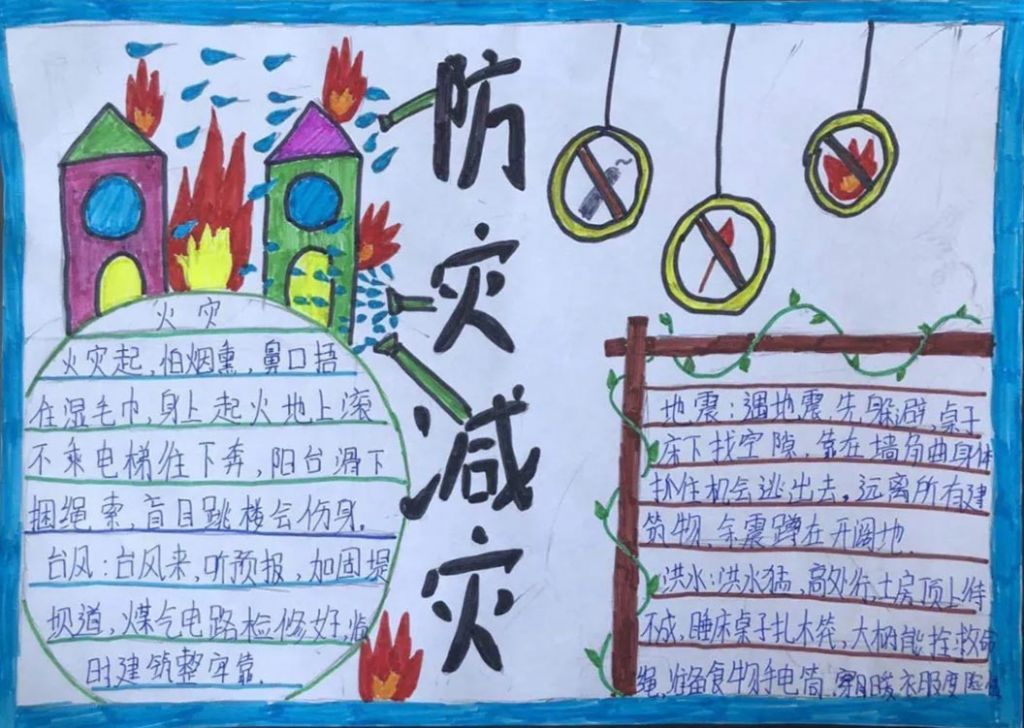 防灾减灾
火灾
火灾起,怕烟熏,鼻口捂
在湿毛巾,身上起火地上滚
不乘电梯往下奔,阳台滑下
捆绳索,盲目跳楼会伤身.
台风:台风来,听预报,加固堤
坝道,煤气电路检修好,临
时建筑整牢靠.
地震:遇地震,先躲避,桌子
床下找空隙,靠在墙角曲身体
抓住机会逃出去,远离所有建
筑物,余震蹲在开阔地.
洪水:洪水猛,高处行,土房顶上待
不成,睡床桌子扎木筏,大树能拴救命
绳,准备食物手电筒,穿暖衣服度